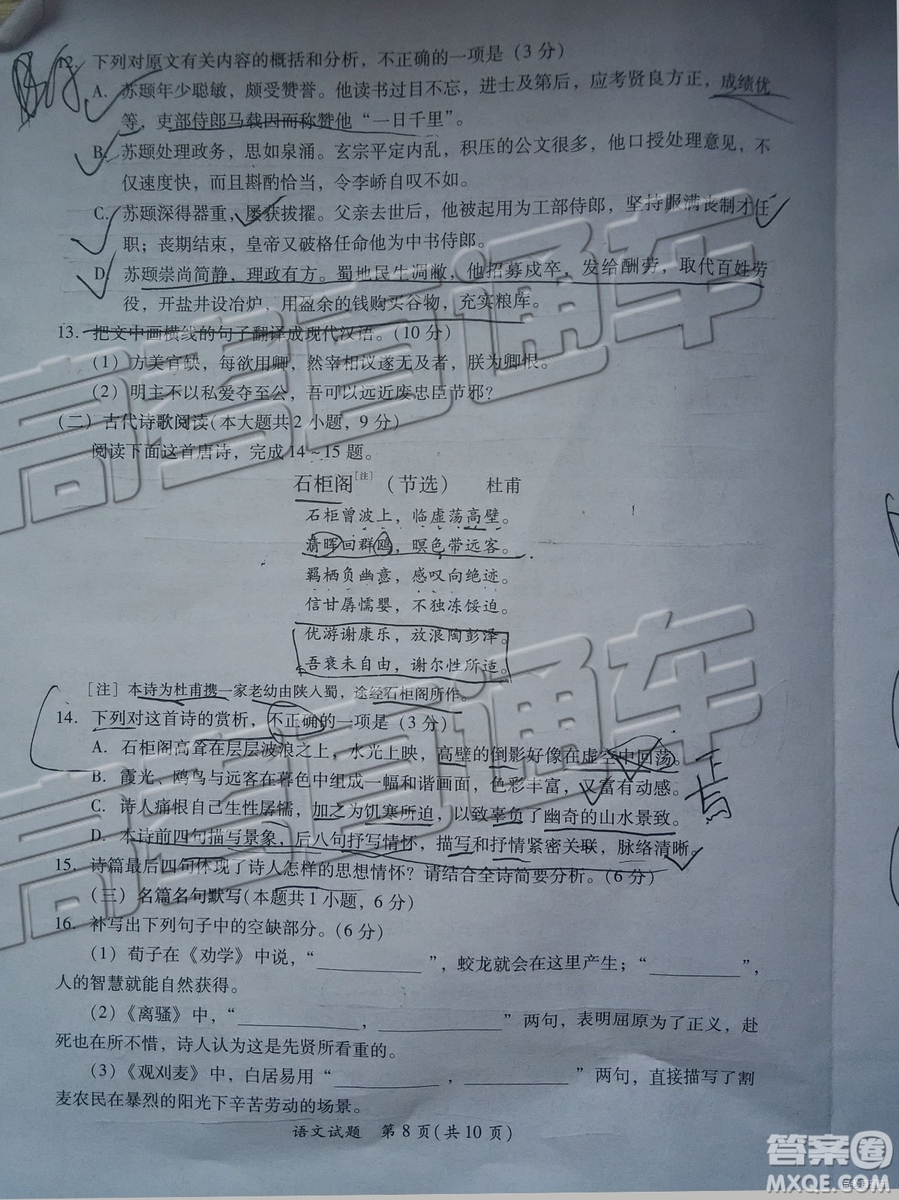 12. 下列对原文有关内容的概括和分析，不正确的一项是（3 分）
A. 苏颋年少聪敏，颇受赞誉。他读书过目不忘，进士及第后，应考贤良方正，成绩优
等，吏部侍郎马载因而称赞他“一日千里”。
B. 苏颋处理政务，思如泉涌。玄宗平定内乱，积压的公文很多，他口授处理意见，不
仅速度快，而且斟酌恰当，令李峤自叹不如。
C. 苏颋深得器重，屡获拔擢。父亲去世后，他被起用为工部侍郎，坚持服满丧制才任
职；丧期结束，皇帝又破格任命他为中书侍郎。
D. 苏颋崇尚简静，理政有方。蜀地民生凋敝，他招募戍卒，发给酬劳，取代百姓劳
役，开盐井设冶炉，用盈余的钱购买谷物，充实粮库。
13. 把文中画横线的句子翻译成现代汉语。（10 分）
（1）方美官缺，每欲用卿，然宰相议遂无及者，朕为卿恨。
（2）明主不以私爱夺至公，吾可以远近废忠臣节邪？
（二）古代诗歌阅读（本大题共 2 小题，9 分）
阅读下面这首唐诗，完成 14～15 题。
石柜阁[注]（节选） 杜甫
石柜曾波上，临虚荡高壁。
清晖回群鸥，暝色带远客。
羁栖负幽意，感叹向绝迹。
信甘孱懦婴，不独冻馁迫。
优游谢康乐，放浪陶彭泽。
吾衰未自由，谢尔性所适。
［注］本诗为杜甫携一家老幼由陕入蜀，途经石柜阁所作。
14. 下列对这首诗的赏析，不正确的一项是（3 分）
A. 石柜阁高耸在层层波浪之上，水光上映，高壁的倒影好像在虚空中回荡。
B. 霞光、鸥鸟与远客在暮色中组成一幅和谐画面，色彩丰富，又富有动感。
C. 诗人痛恨自己生性孱懦，加之为饥寒所迫，以致辜负了幽奇的山水景致。
D. 本诗前四句描写景象，后八句抒写情怀，描写和抒情紧密关联，脉络清晰。
15. 诗篇最后四句体现了诗人怎样的思想情怀？请结合全诗简要分析。（6 分）
（三）名篇名句默写（本题共 1 小题，6 分）
16. 补写出下列句子中的空缺部分。（6 分）
（1）荀子在《劝学》中说，“__________”，蛟龙就会在这里产生；“__________”，
人的智慧就能自然获得。
（2）《离骚》中，“__________，__________”两句，表明屈原为了正义，赴
死也在所不惜，诗人认为这是先贤所看重的。
（3）《观刈麦》中，白居易用“__________，__________”两句，直接描写了割
麦农民在暴烈的阳光下辛苦劳动的场景。
语文试题 第 8 页（共 10 页）
高考直通车
高考直通车
答案圈
MXQE.COM